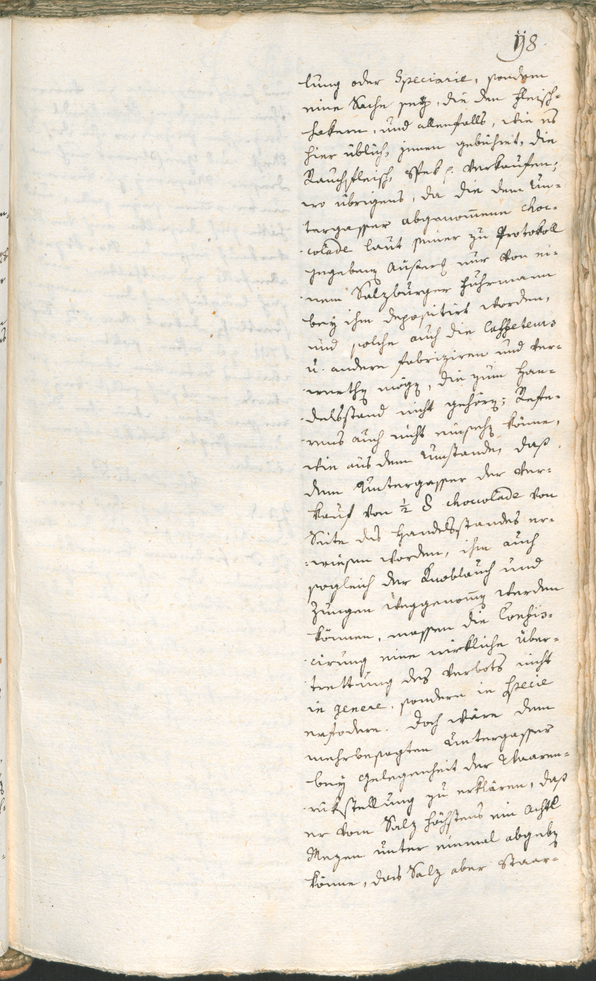 98.
lung oder Speciarie, sondern
eine Sache seye, die den Fleisch-
hakern, und allenfalls, wie es
hier üblich, jenen gebühret, die
Rauchfleisch, Spek p. verkaufen;
wo übrigens, da die dem Un-
tergasser abgenommene Choc-
colade laut seiner zu Protokoll
gegebenen Aussag nur von ei-
nem Salzburger Fuhrmann
bey ihm depositirt worden,
und solche auch die Caffeteurs
u. andere fabriziren und ver-
werthen mögen, die zum Han-
delsstand nicht gehören; Refe-
rens auch nicht einsehen könne,
wie aus dem Umstande, daß
dem Untergasser der Ver-
kauf von ½ ℔ Chocolade von
Seite des Handelsstandes er-
wiesen worden, ihm auch
sogleich der Knoblauch und
Zungen weggenommen werden
können, massen die Confis-
cirung eine wirkliche Über-
trettung des Verbots nicht
in genere, sondern in specie
erfodere. Doch wäre dem
mehrbesagten Untergasser
bey Gelegenheit der Waaren-
rükstellung zu erklären, daß
er vom Salz höchstens ein Achtl
Mezen unter einmal abgeben
könne, das Salz aber Staar-